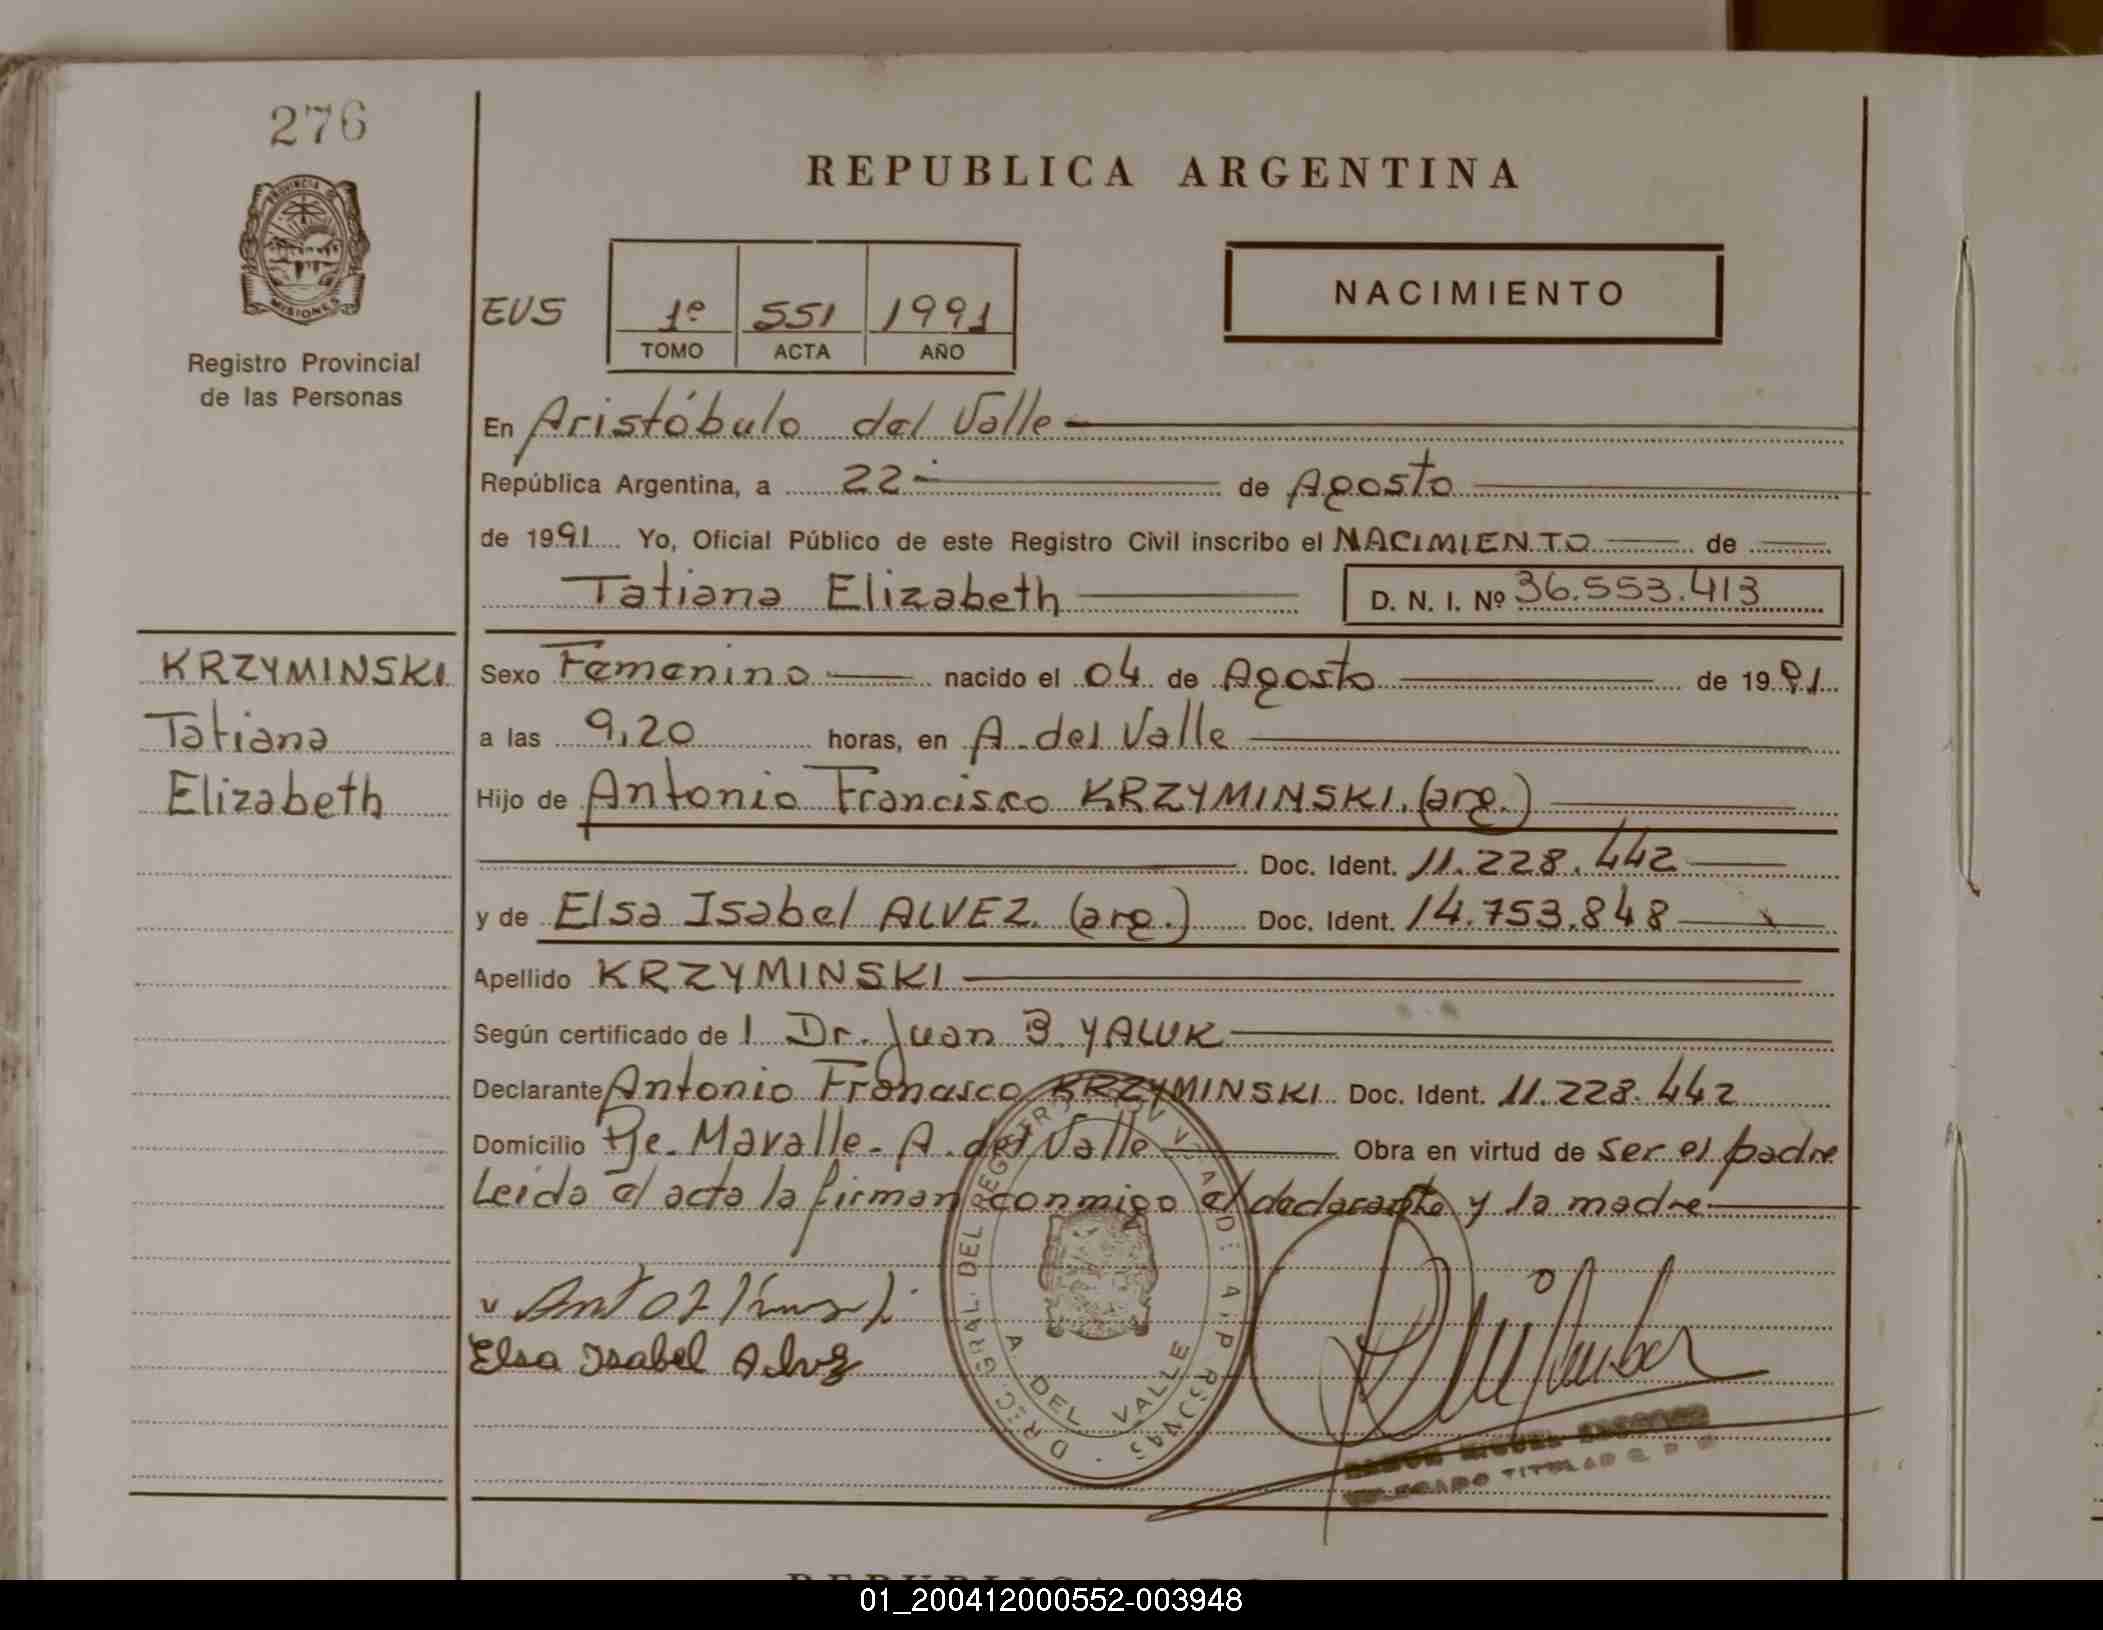 276
REPUBLICA ARGENTINA
PROVINCIA DE
MISIONES
Registro Provincial
de las Personas
EUS
1º 551 1991
TOMO ACTA AÑO
NACIMIENTO
En Aristóbulo del Valle
República Argentina, a 22 de Agosto
de 1991 Yo, Oficial Público de este Registro Civil inscribo el NACIMIENTO de
Tatiana Elizabeth D. N. I. Nº 36.553.413
KRZYMINSKI
Tatiana
Elizabeth
Sexo Femenino nacido el 04 de Agosto de 1991
a las 9,20 horas, en A. del Valle
Hijo de Antonio Francisco KRZYMINSKI. (arg.)
Doc. Ident. 11.228.442
y de Elsa Isabel ALVEZ. (arg.) Doc. Ident. 14.753.848
Apellido KRZYMINSKI
Según certificado de l Dr. Juan B. YALUK
Declarante Antonio Francisco KRZYMINSKI Doc. Ident. 11.228.442
Domicilio Pje. Mavalle - A. del Valle Obra en virtud de ser el padre
Leida el acta la firman conmigo el declarante y la madre
Elsa Isabel Alvez
DIREC. GRAL. DEL REGISTRO
A. DEL VALLE
MISIONES
RAMON MIGUEL
DELEGADO TITULAR R. P. P.
01_200412000552-003948